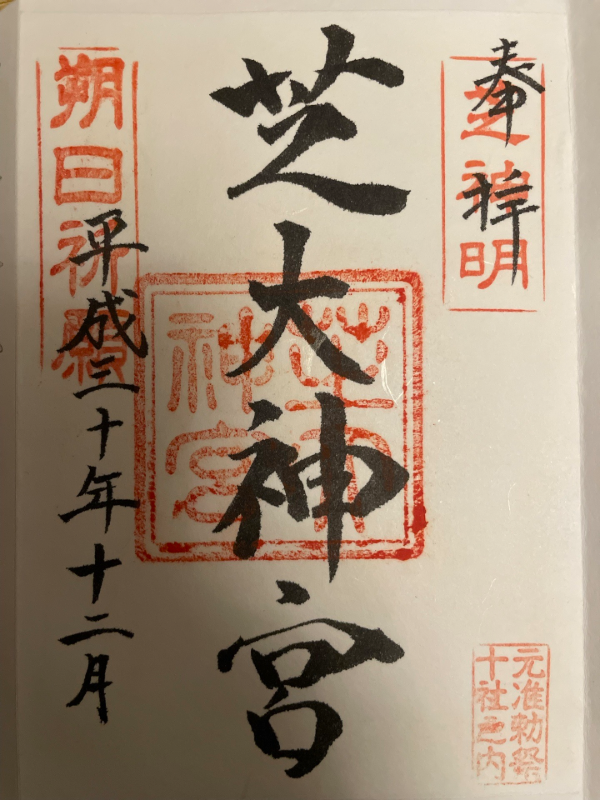 奉拝
芝神明
元准勅祭
十社之内
芝大神宮
芝大
神宮
朔日祈願
平成三十年十二月